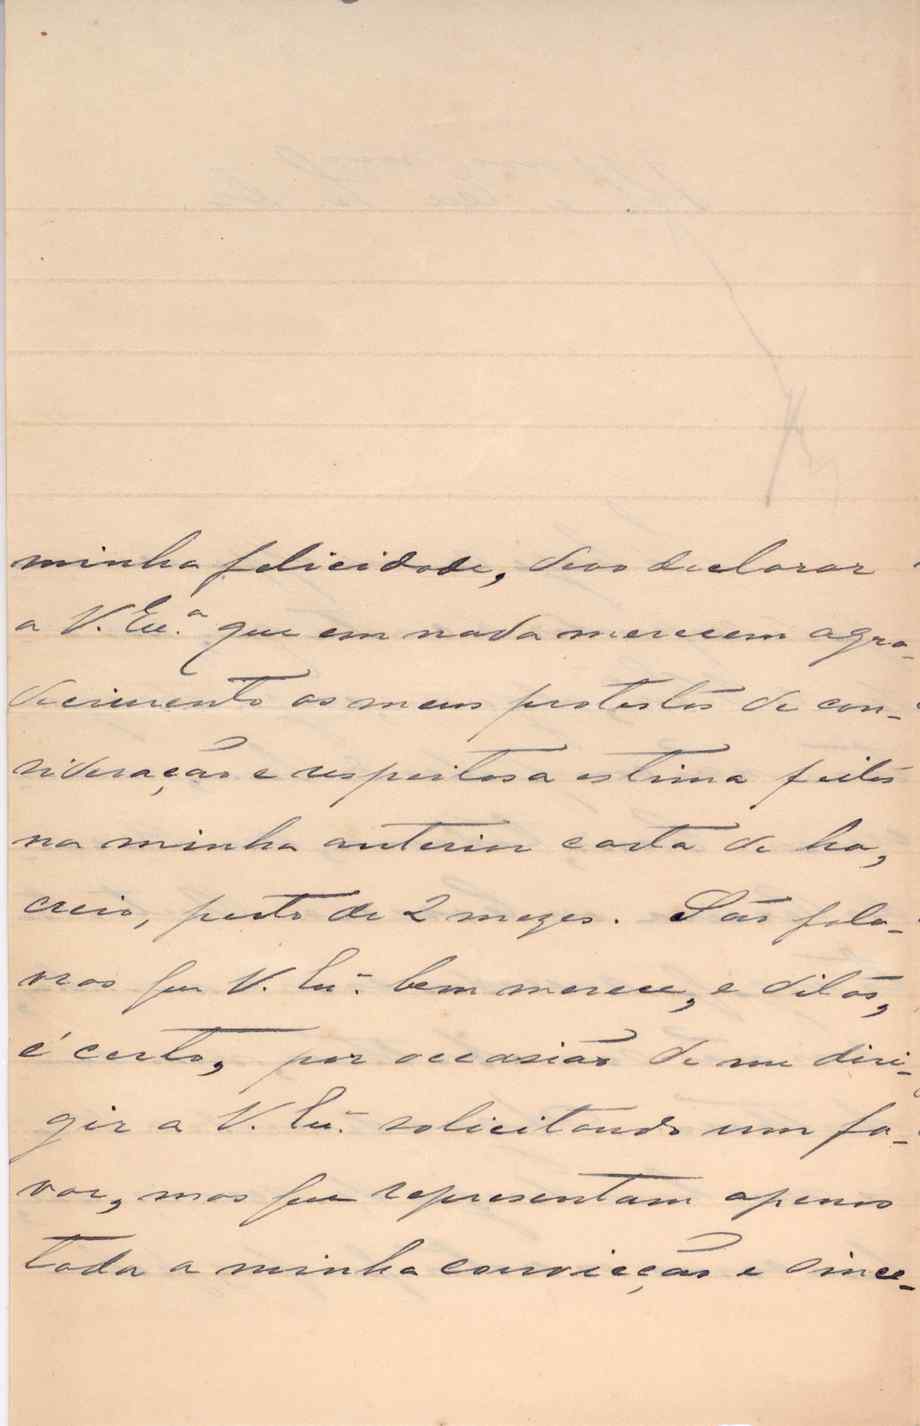 minha felicidade, devo declarar
a V. Ex.ª que em nada merecem agra-
decimento os meus protestos de con-
sideração e respeitosa estima feitos
na minha anterior carta de ha,
creio, perto de 2 mezes. São pala-
vras que V. Ex.ª bem merece, e ditas,
é certo, por occasião de me diri-
gir a V. Ex.ª solicitando um fa-
vor, mas que representam apenas
toda a minha convicção e since-